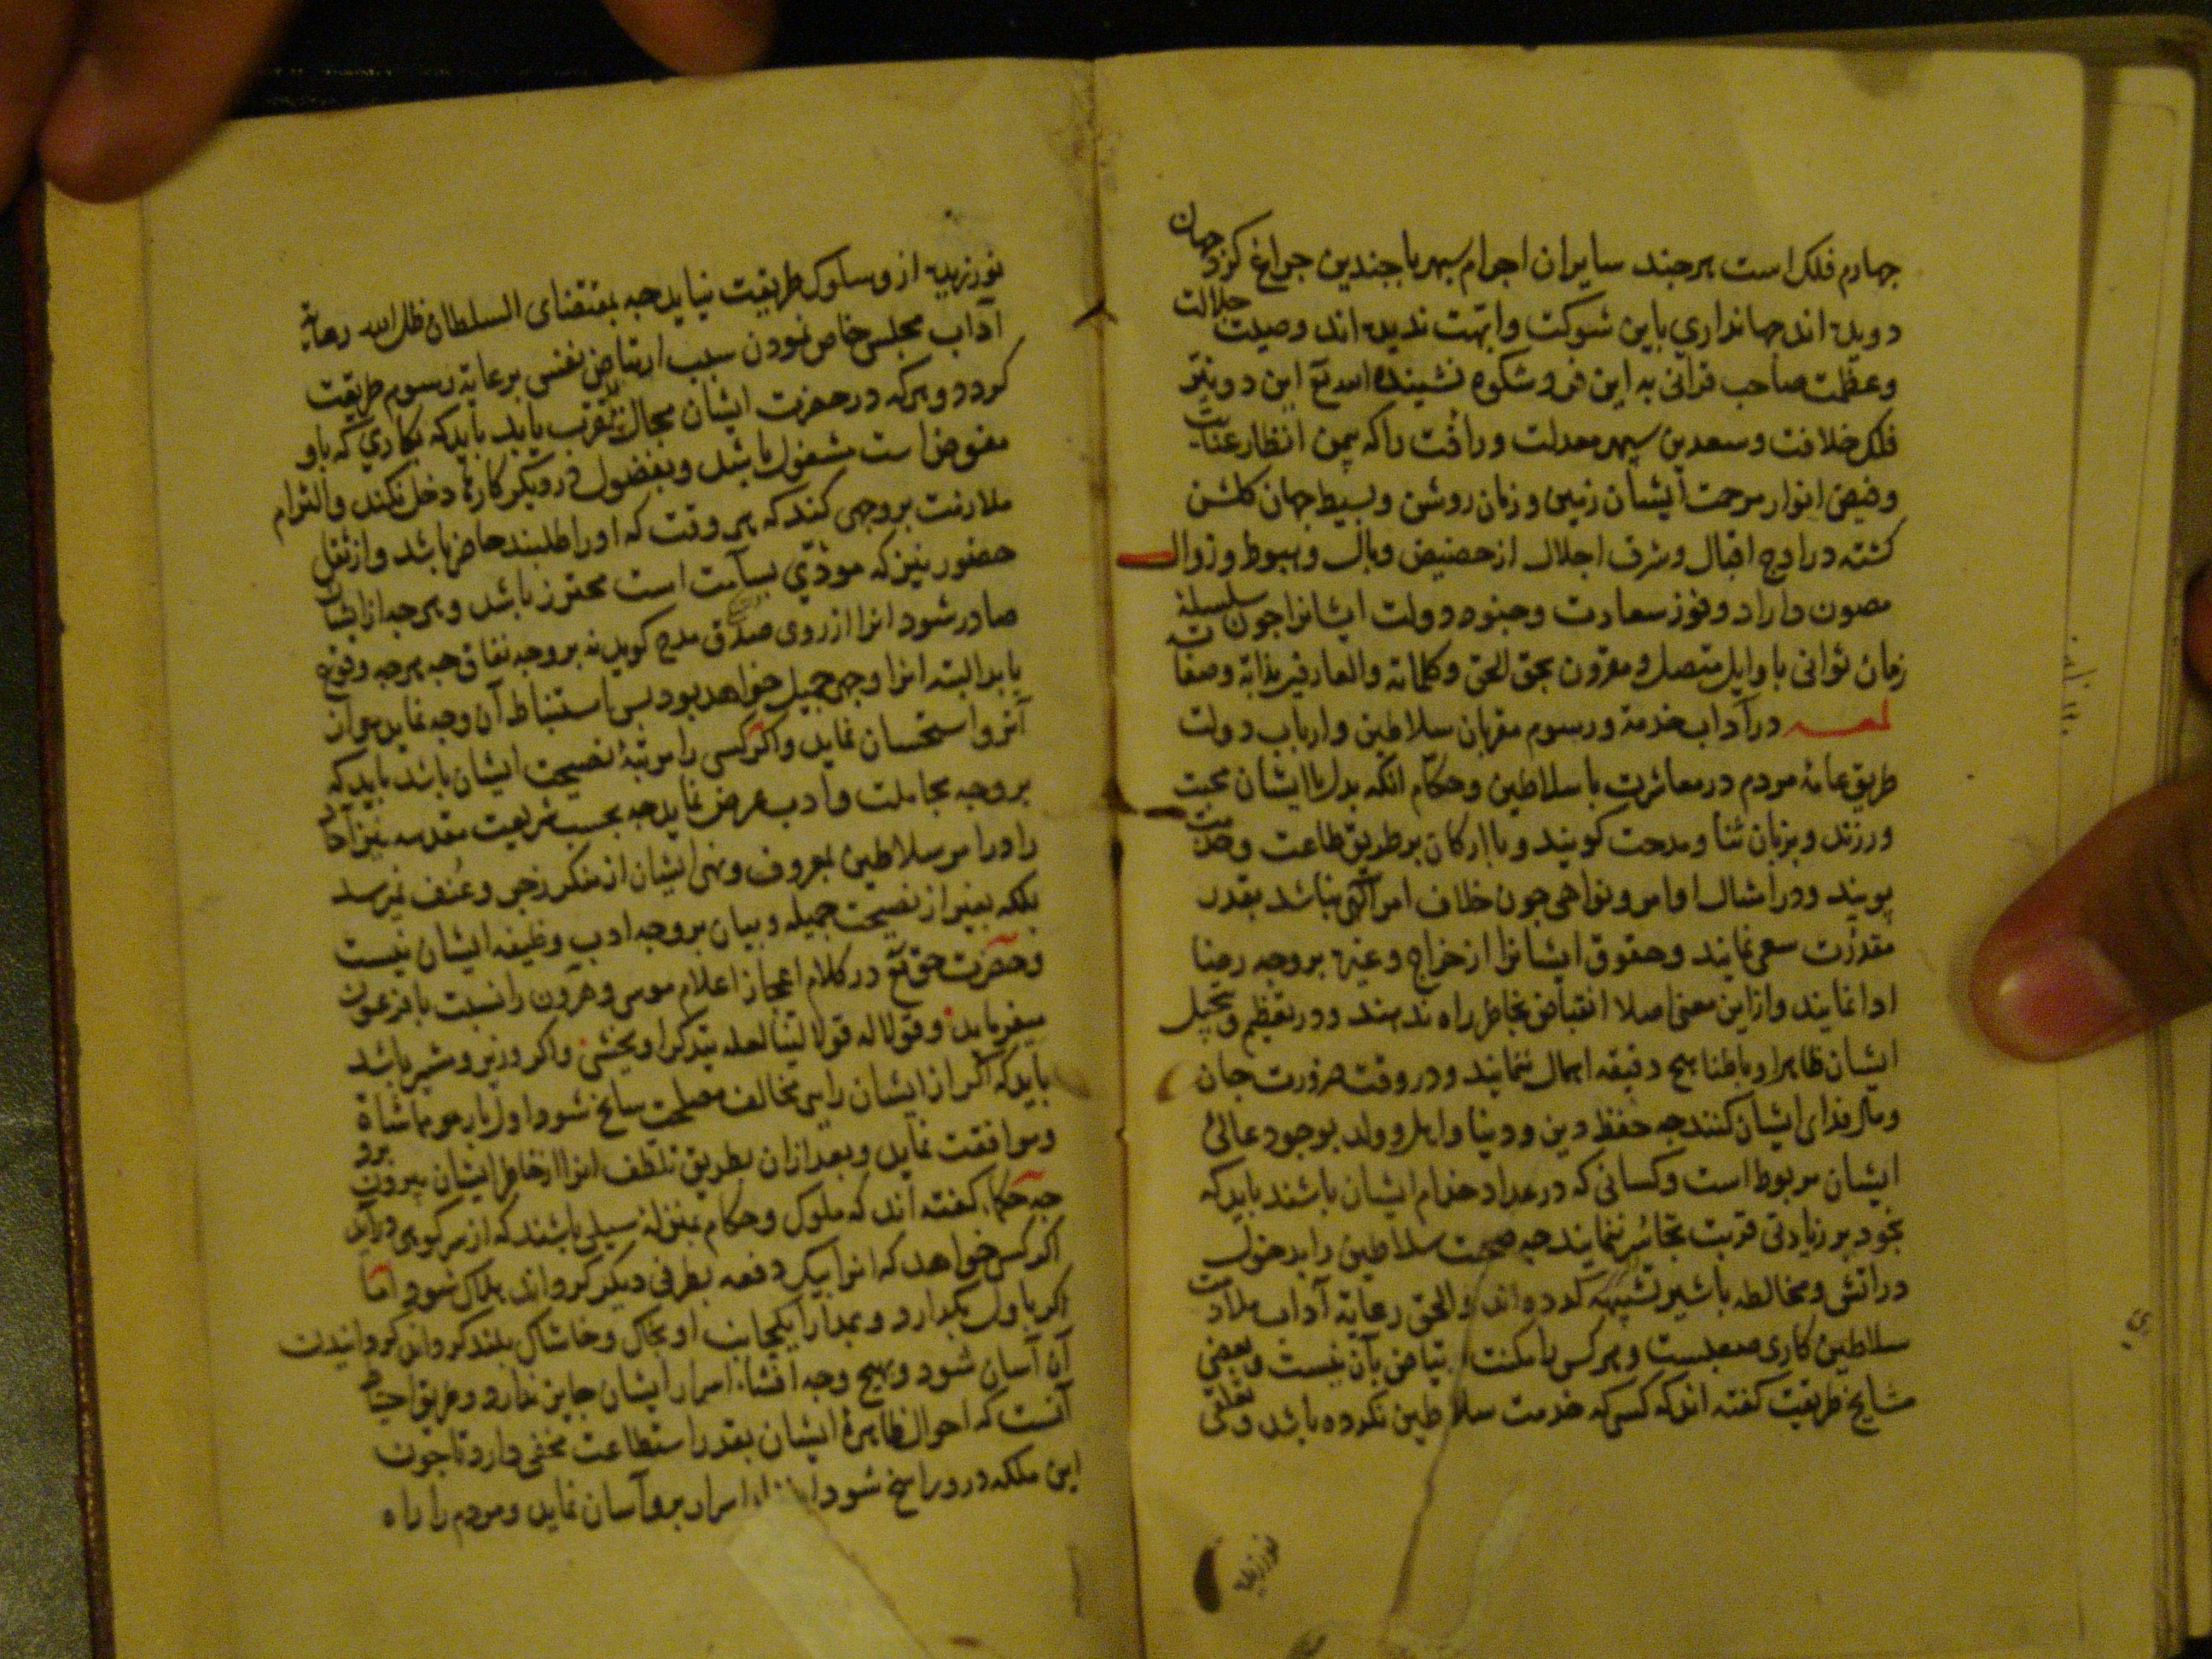 جهارم فلک است هرجند سایران اجرام سپهر با جندین جراغ کرد جهان
دویده اند جهانداری باین شوکت و ابهت ندیده اند وصیت جلالت
وعظمت صاحب قرانی به این فر و شکوه نشینده اند تع این دو نیر
فلک خلافت وسعدین سپهر معدلت ورأفت راکه بیمن انظار عنایت
وفیض انوار مرحمت ایشان زمین و زمان روشن وبسیط جهان کلشن
کشته دراوج اقبال وشرف اجلال ازحضیض وبال وهبوط وزوال
مصون داراد وفوز سعادت وجنود دولت ایشانرا جون سلسلهٔ
زمان ثوانی باوایل متصل و مقرون بحق الحق وکلماته والعارفین بذاته وصفاته
لمعه درآداب خدمة ورسوم مقربان سلاطین وارباب دولت
طریق عامهٔ مردم درمعاشرت با سلاطین وحکام انکه بدل باایشان محبت
ورزند وبزبان ثنا ومدحت کویند وباارکان برطریق طاعت وخدمت
پویند ودرامثال اوامر ونواهی جون خلاف امر آلهی نباشد بقدر
مقدرت سعی نمایند وحقوق ایشانرا ازخراج وغیره بروجه رضا
ادا نمایند وازاین معنی اصلا انقباض بخاطر راه ندهند ودرتعظیم وتبجیل
ایشان ظاهرا وباطنا هیچ دقیقه اهمال ننمایند ودروقت ضرورت جان
ومال فدای ایشان کنند جه حفظ دین ودینا واهل وولد بوجود عالئ
ایشان مربوط است وکسانی که درعداد خدام ایشان باشند باید که
بخود بر زیادتی قربت تجاسر ننمایند جه صحبت سلاطین رابدخول
درآتش ومخالطه باشیر تشبیهه کرده اند والحق رعایة آداب ملازمت
سلاطین کاری صعبست وهرکس بامکنت بتیافن بآن نیست وبعضی
مشایخ طریقت کفته اندکه کسی که خدمت سلاطین نکرده باشد وتعلق
نورزیده
نورزیده ازو سلوک طریقت نیاید جه بمقتضای السلطان ظل الله رعایة
آداب مجلس خاص نمودن سبب ارتیاض نفس برعایة رسوم طریقت
کردد وهرکه درحضرت ایشان مجال تقرب یابد بایدکه بکاری که باو
مفوض است مشغول باشد وبفضول دردیکر کارها دخل نکند والتزام
ملازمت بروجهی کند که بهر وقت که اوراطلبند حاضر باشد وازثقل
حضور نیز که مودی بسآمت است محترز باشد وهرجه ازایشان
صادر شود انرا ازروی صدق مدح کوید نه بروجه نفاق جه هرجه وقوع
یابد البته انرا وجهی جمیل خواهد بود پس استنباط آن وجه نماید وازان
آنرو استحسان نماید واکر کسی را مرتبهٔ نصیحت ایشان باشد باید که
بروجه مجاملت وادب عرض نماید جه بحسب شریعت مقدسه نیز آحاد
رادر امر سلاطین بمعروف ونهی ایشان از منکر زجر وعنف نمیرسد
بلکه بغیر از نصیحت جمیله وبیان بروجه ادب وظیفه ایشان نیست
وحضرت حق تع درکلام اعجاز اعلام موسی وهرون رانسبت بافرعون
میفرماید وقولا له قولا لینا لعله یتذکر اویخشی واکر وزیر ومشیر باشد
باید که اکر ازایشان رایی مخالف مصلحت سانح شود اول بار مماشاة
وموافقت نماید وبعدازان بطریق تلطف انرا ازخاطر ایشان بیرون برد
جه حکما کفته اند که ملوک وحکام بمنزلهٔ سیلی باشند که ازسر کوهی درآید
اکر کس خواهد که انرا بیک دفعه بطرفی دیکر کرداند هلاک شود اما
اکر باول بکذارد وبمدارا یکجانب او بخاک وخاشاک بلند کرداند کردانیدن
آن آسان شود وبهیچ وجه افشاء اسرار ایشان جایز ندارد وطریق احتیاط
آنست که احوال ظاهرهٔ ایشان بقدر استطاعت مخفی دارد تاجون
این ملکه درو راسخ شود اسرار برو آسان نماید ومردم را راه